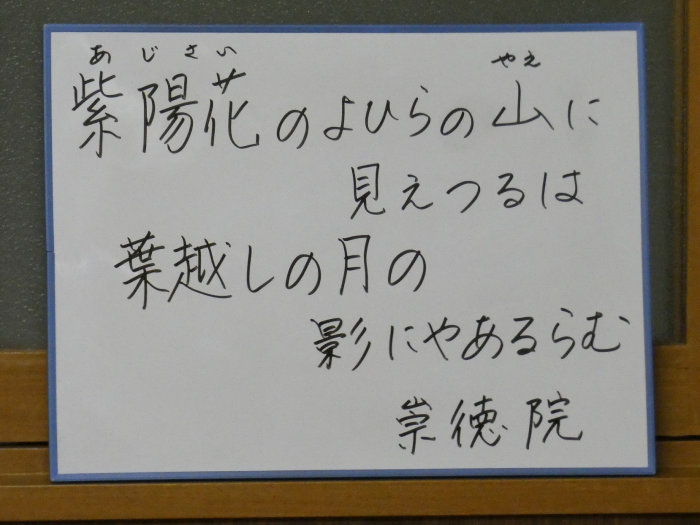 あじさい やえ
紫陽花のよひらの山に
見えつるは
葉越しの月の
影にやあるらむ
崇徳院